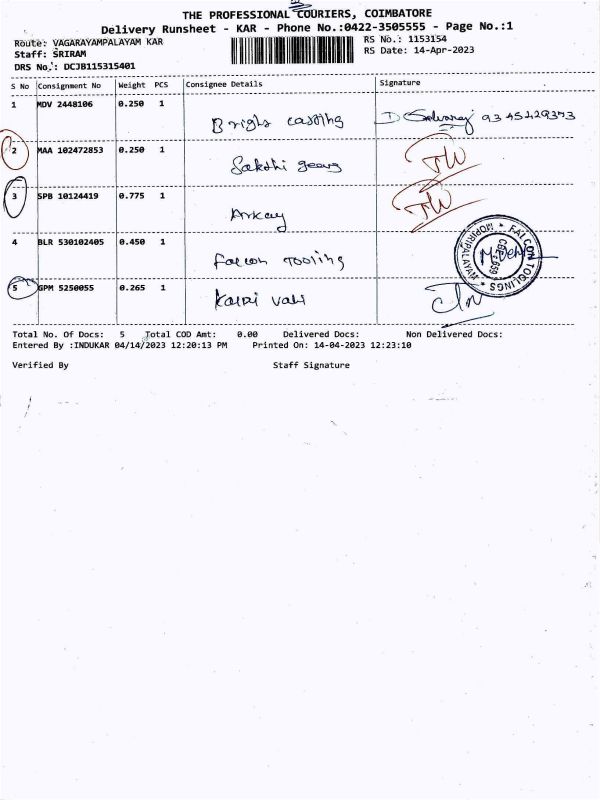 THE PROFESSIONAL COURIERS, COIMBATORE
Delivery Runsheet - KAR - Phone No.:0422-3505555 - Page No.:1
Route: VAGARAYAMPALAYAM KAR
RS No.: 1153154
Staff: SRIRAM
RS Date: 14-Apr-2023
DRS No.: DCJB115315401
S No Consignment No Weight PCS Consignee Details Signature
1 MDV 2448106 0.250 1
Bright casting 9345429373
2 MAA 102472853 0.250 1
Sakthi gears
3 SPB 10124419 0.775 1
Arkay
4 BLR 530102405 0.450 1
Falcon Tooling
FALCON TOOLINGS
MOPIRIPALAYAM
CBE-659
5 GPM 5250055 0.265 1
Total No. Of Docs: 5 Total COD Amt: 0.00 Delivered Docs: Non Delivered Docs:
Entered By :INDUKAR 04/14/2023 12:20:13 PM Printed On: 14-04-2023 12:23:10
Verified By Staff Signature